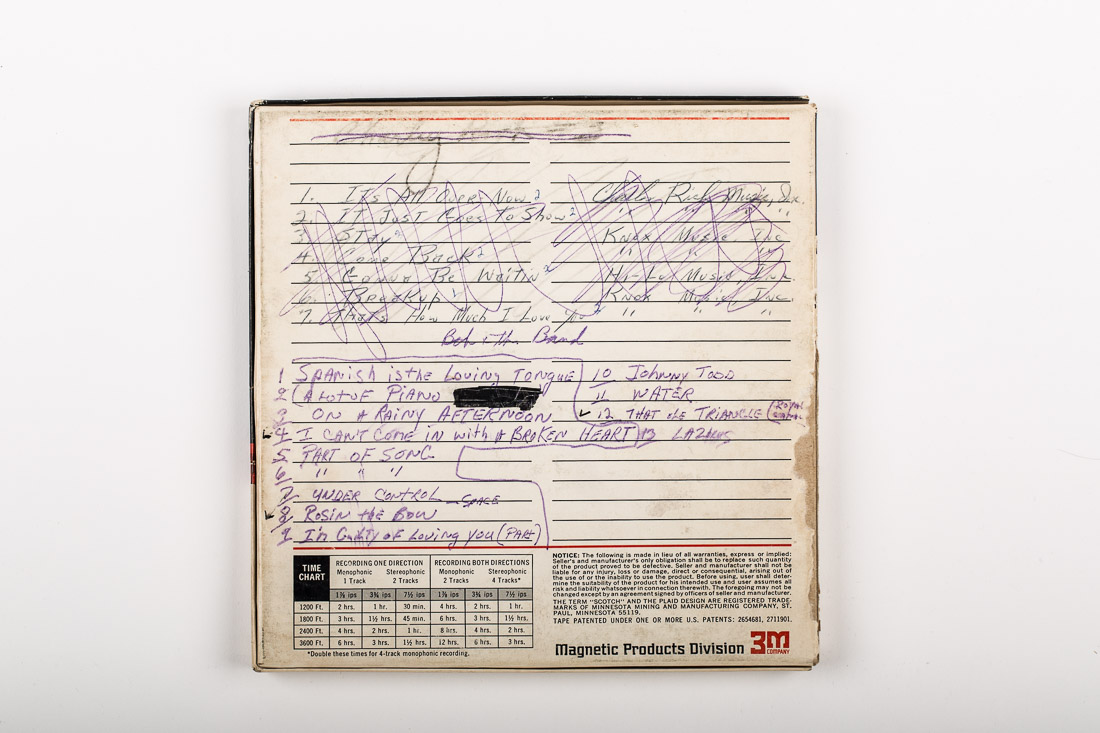 1. It's All Over Now 2 Charlie Rich Music, Inc.
2. It Just Goes to Show 2 " " " "
3. Stay 2 Knox Music Inc
4. Come Back 2 " " "
5. Gonna Be Waitin 2 Hi-Lo Music, Inc
6. Breakup 1 Knox Music, Inc.
7. Thats How Much I Love You 2 " " "
Band
1 SPANISH is the Loving TONGUE
2 A LOT OF PIANO
3 ON A RAINY AFTERNOON
✓ 4 I CAN'T COME IN with A BROKEN HEART
5 PART OF SONG
6 " " "
7 UNDER CONTROL — SPACE
✓ 8 ROSIN the BOW
9 I'm Guilty OF Loving you (PART)
10 JOHNNY TODD
11 WATER
✓ 12 THAT OLE TRIANGLE (ROYAL
13 LAZARUS
TIME CHART
RECORDING ONE DIRECTION RECORDING BOTH DIRECTIONS
Monophonic Stereophonic Monophonic Stereophonic
1 Track 2 Tracks 2 Tracks 4 Tracks*
1⅞ ips 3¾ ips 7½ ips 1⅞ ips 3¾ ips 7½ ips
1200 Ft. 2 hrs. 1 hr. 30 min. 4 hrs. 2 hrs. 1 hr.
1800 Ft. 3 hrs. 1½ hrs. 45 min. 6 hrs. 3 hrs. 1½ hrs.
2400 Ft. 4 hrs. 2 hrs. 1 hr. 8 hrs. 4 hrs. 2 hrs.
3600 Ft. 6 hrs. 3 hrs. 1½ hrs. 12 hrs. 6 hrs. 3 hrs.
*Double these times for 4-track monophonic recording.
NOTICE: The following is made in lieu of all warranties, express or implied:
Seller's and manufacturer's only obligation shall be to replace such quantity
of the product proved to be defective. Seller and manufacturer shall not be
liable for any injury, loss or damage, direct or consequential, arising out of
the use of or the inability to use the product. Before using, user shall deter-
mine the suitability of the product for his intended use and user assumes all
risk and liability whatsoever in connection therewith. The foregoing may not be
changed except by an agreement signed by officers of seller and manufacturer.
THE TERM "SCOTCH" AND THE PLAID DESIGN ARE REGISTERED TRADE-
MARKS OF MINNESOTA MINING AND MANUFACTURING COMPANY, ST.
PAUL, MINNESOTA 55119.
TAPE PATENTED UNDER ONE OR MORE U.S. PATENTS: 2654681, 2711901.
Magnetic Products Division 3M COMPANY